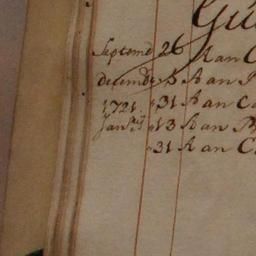 Gu
Septemb 26 Aan C
decemb 5 Aan
1721 31 Aan Ca
Janrij 13 Aan B
31 Aan C